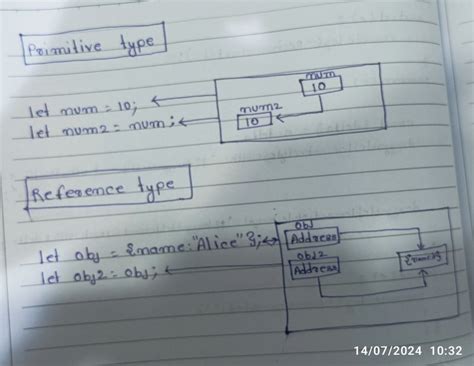 Primitive type
num
10
let num = 10;
num2
let num2 = num;
10
Reference type
obj
let obj = {name:"Alice"};
Address
obj2
let obj2 = obj;
Address
14/07/2024 10:32